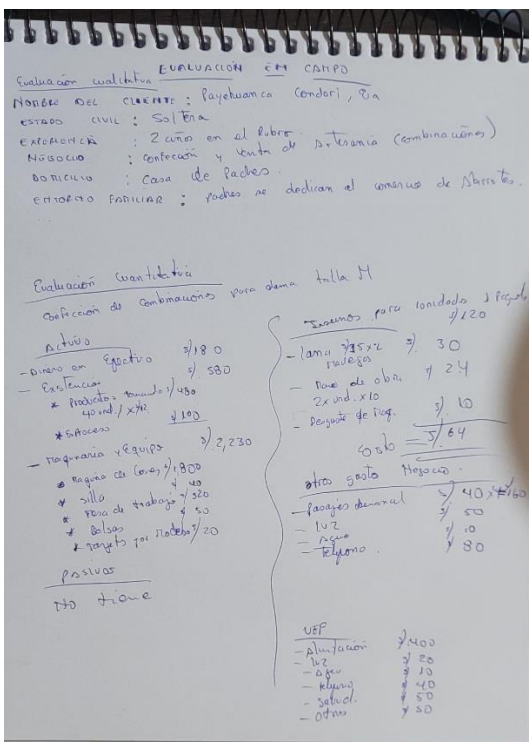 EVALUACIÓN EN CAMPO
Evaluación cualitativa
NOMBRE DEL CLIENTE : Payehuanca Condori,
ESTADO CIVIL : Soltera
EXPERIENCIA : 2 años en el Rubro
NEGOCIO : confección y venta de Artesania (combinaciones)
DOMICILIO : Casa de Padres.
ENTORNO FAMILIAR : padres se dedican al comercio de Abarrotes.
Evaluación Cuantitativa
Confección de combinaciones para dama talla M
Activo
- Dinero en Efectivo S/ 180
- Existencias S/. 580
* Productos S/ 480
40 und. / x 12
* S/ 100
- Maquinaria y Equipo S/ 2,230
* Maquina de S/ 1,800
* Silla S/ 40
* Mesa de trabajo S/ 320
* Bolsas S/ 50
* por Modelo S/ 20
PASIVOS
No tiene
Insumos para 1 unidades
S/ 120
- lana x 2 S/. 30
- Mano de obra S/ 24
2x und. x 10
- de Maq. S/. 10
Costo = S/ 64
otros gasto Negocio.
- Pasajes semanal S/ 40 x 4 160
- luz S/ 50
- Agua S/ 10
- Telefono. S/ 80
UEF
- Alimentación S/. 400
- luz S/ 20
- Agua S/ 10
- telefono S/ 40
- Salud. S/ 50
- Otros S/ 50